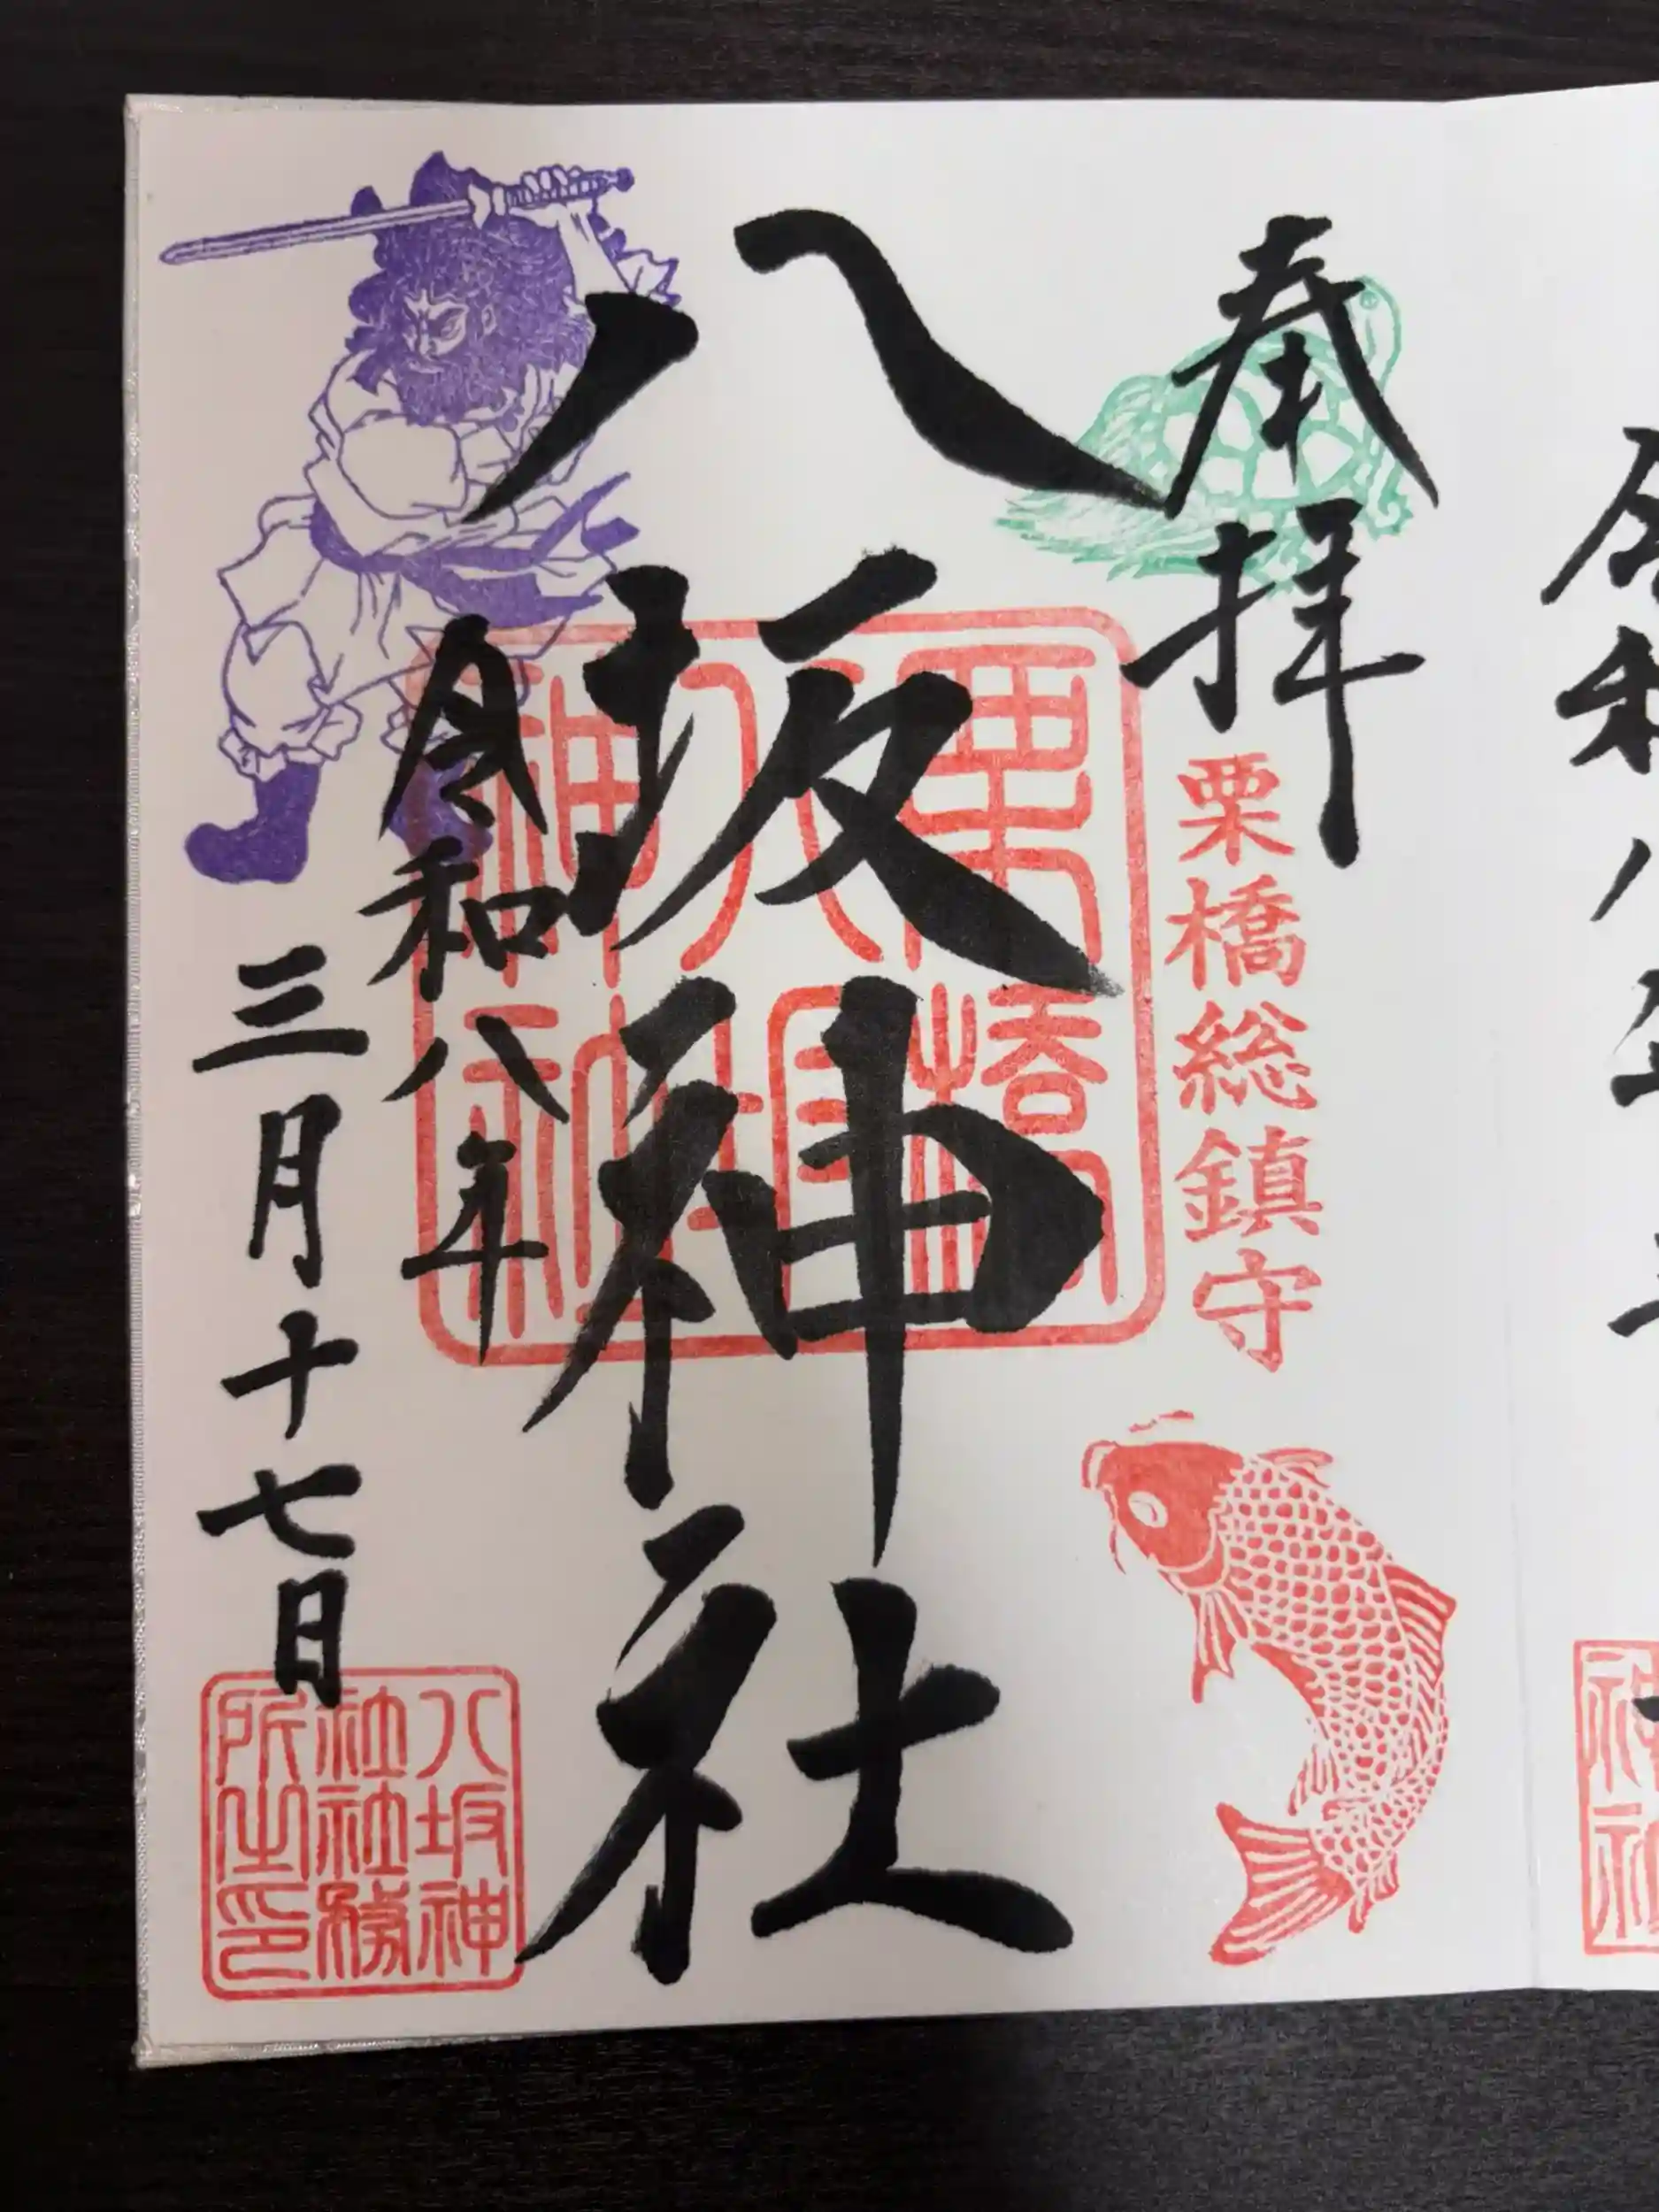 奉拝
栗橋総鎮守
八坂神社
栗橋
八坂
神社
令和八年
三月十七日
八坂神
社社務
所之印